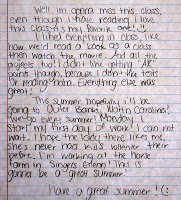 Well, I'm gonna miss this class,
even though I hate reading I love
this class. It's my favorite one! :)
I liked everything in class, like
how we'd read a book as a class
then watch the movie. And all the
projects too! I didn't like getting AR
points though, because I didn't the tests
or reading haha. Everything else was
great! :)
This summer hopefully I'll be
going to Outer Banks, North Carolina!
We go every summer! Monday I
start my first day of work! I can not
wait. I hope the lady there, likes me,
she's never had kids volunteer there
before. I'm working at the horse
farm in Singers Glenn! This is
gonna be a great summer.
have a great summer! (: